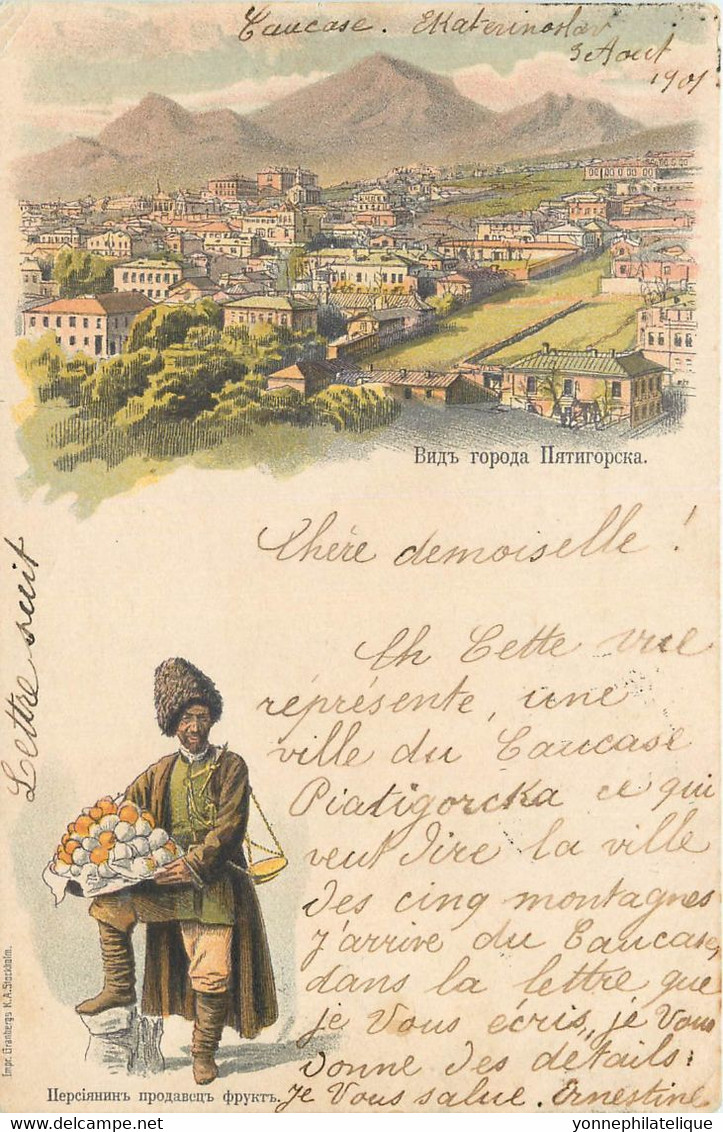 Caucase. Ekaterinoslav
3 Aout
1901
Видъ города Пятигорска.
Chère demoiselle !
Ch Cette vue
réprésente, une
ville du Caucase
Piatigorcka ce qui
veut dire la ville
des cinq montagnes
J'arrive du Caucase,
dans la lettre que
je Vous écris, je Vous
donne des détails:
Je Vous salue. Ernestine
Lettre suit
Impr. Granbergs K.A. Stockholm.
Персіянинъ продавецъ фруктъ.
www.yonnephilatelique.com